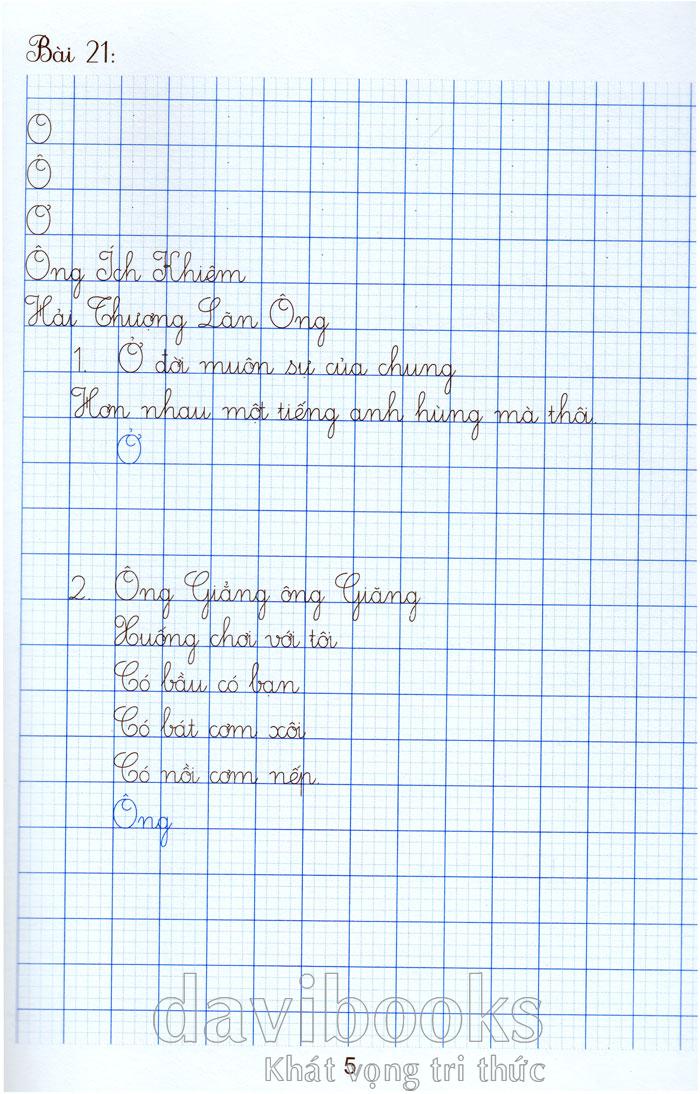 Bài 21:
O
Ô
Ơ
Ông Ích Khiêm
Hải Thượng Lãn Ông
1. Ở đời muôn sự của chung
Hơn nhau một tiếng anh hùng mà thôi.
Ở
2. Ông Giẳng ông Giăng
Xuống chơi với tôi
Có bầu có bạn
Có bát cơm xôi
Có nồi cơm nếp.
Ông
davibooks
Khát vọng tri thức
5